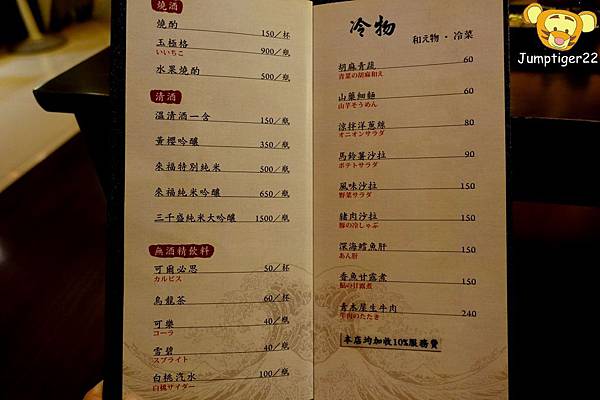 燒酒
燒酌 150/杯
玉極格 900/瓶
いいちこ
水果燒酌 500/瓶
清酒
溫清酒一合 150/瓶
黃櫻吟釀 350/瓶
來福特別純米 500/瓶
來福純米吟釀 650/瓶
三千盛純米大吟釀 1500/瓶
無酒精飲料
可爾必思 50/杯
カルピス
烏龍茶 60/杯
可樂 40/瓶
コーラ
雪碧 40/瓶
スプライト
白桃汽水 100/瓶
白桃サイダー
冷物
和え物・冷菜
胡麻青蔬 60
青菜の胡麻和え
山藥細麵 60
山芋そうめん
涼拌洋蔥絲 80
オニオンサラダ
馬鈴薯沙拉 90
ポテトサラダ
風味沙拉 150
野菜サラダ
豬肉沙拉 150
豚の冷しゃぶ
深海鱈魚肝 150
あん肝
香魚甘露煮 150
鮎の甘露煮
青木屋生牛肉 240
牛肉のたたき
本店均加收10%服務費
Jumptiger22